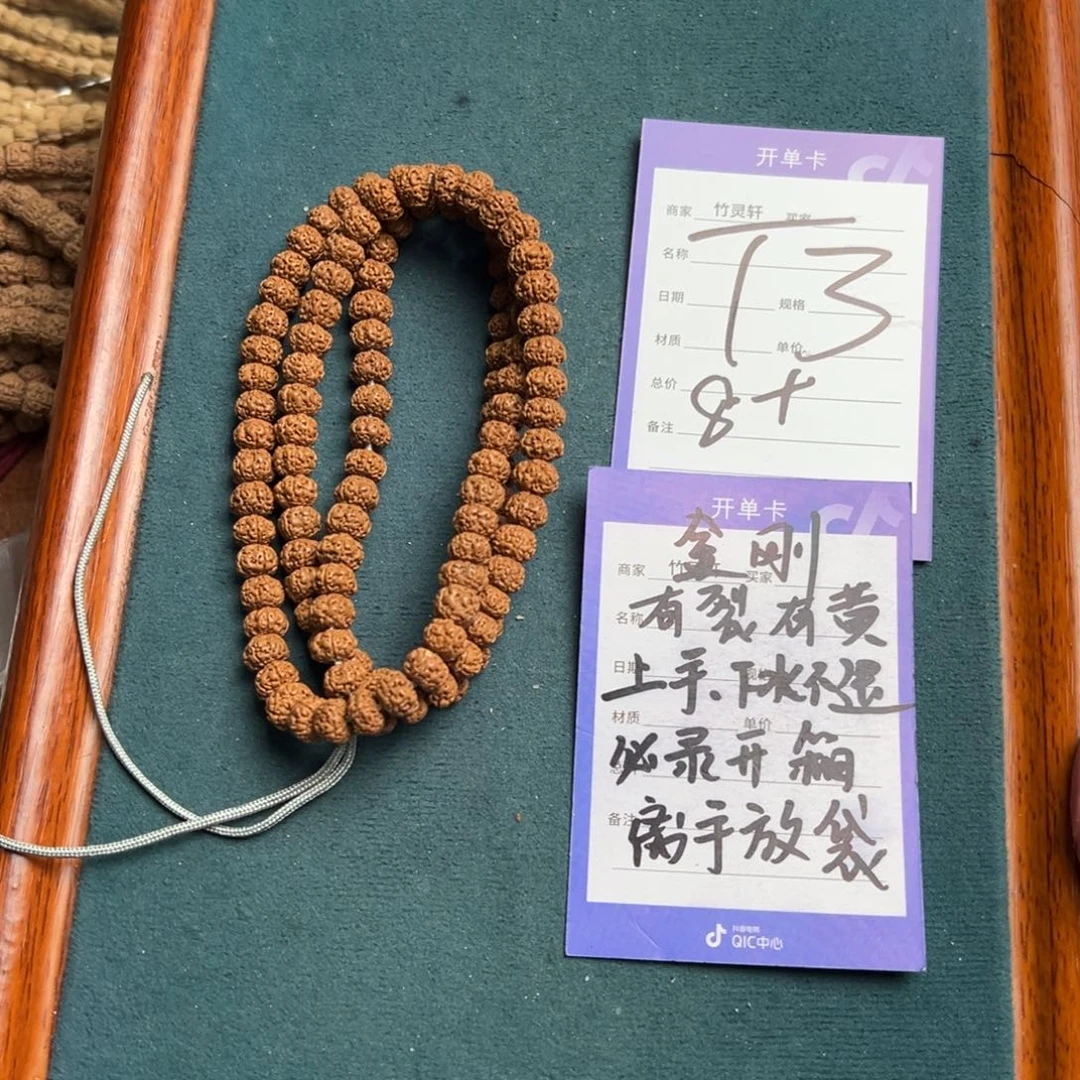 开单卡
商家 竹灵轩 买家
名称
T3
日期 规格
材质 单价
总价
8+
备注
开单卡
金刚
商家 竹 轩 买家
名称
有裂有黄
日期
上手.下水不退
材质 单价
必录开箱
备注
离手放袋
抖音电商
QIC中心